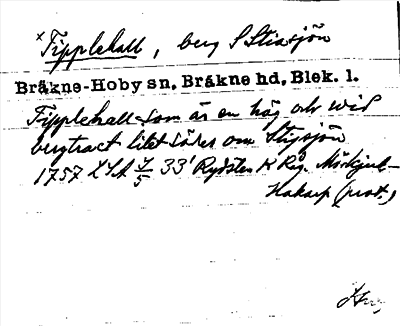 × Tipplehall, berg S Stiasjön
Bräkne-Hoby sn, Bräkne hd, Blek. l.
Tipplehall som är en hög och wid
bergtract litet söder om Stigsjön
1757 LSA 33' Rydsten K Råg. Mörkjul-
Hakarp (prot.)